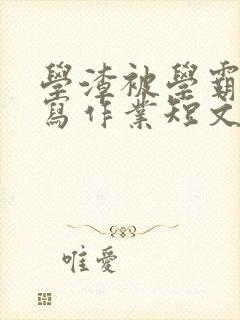 學渣被學霸
寫作業短文
唯愛